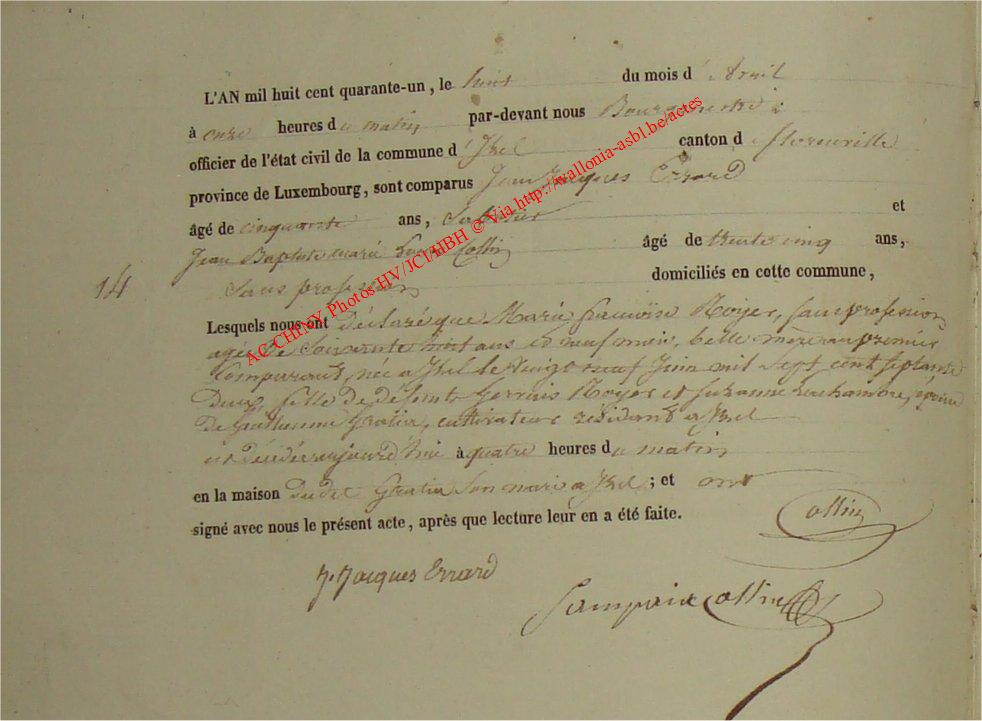 L'AN mil huit cent quarante-un, le huit du mois d'Avril
à onze heures du matin par-devant nous Bourgmestre
officier de l'état civil de la commune d'Izel canton d
province de Luxembourg, sont comparus Jean Jacques Errard
âgé de cinquante ans, et
Jean Baptiste Marie Collin âgé de trente cinq ans,
14 Sans profession domiciliés en cette commune,
Lesquels nous ont déclaré que Marie françoise Noyer, sans profession
agée de Soixante huit ans et neuf mois, belle mère au premier
Comparant, née a Izel le vingt neuf Juin mil Sept cent septante
deux, fille de défunts Gervais Noyer et Suzanne épouse
de Guillaume Gratia, cultivateur résidant a Izel
est décédée aujourd'hui à quatre heures du matin
en la maison dudit Gratia Son mari a Izel; et ont
signé avec nous le présent acte, après que lecture leur en a été faite.
Collin
J. Jacques Errard
Collin
AC CHINY Photos HV/JCI/HBH © Via http://wallonia-asbl.be/actes